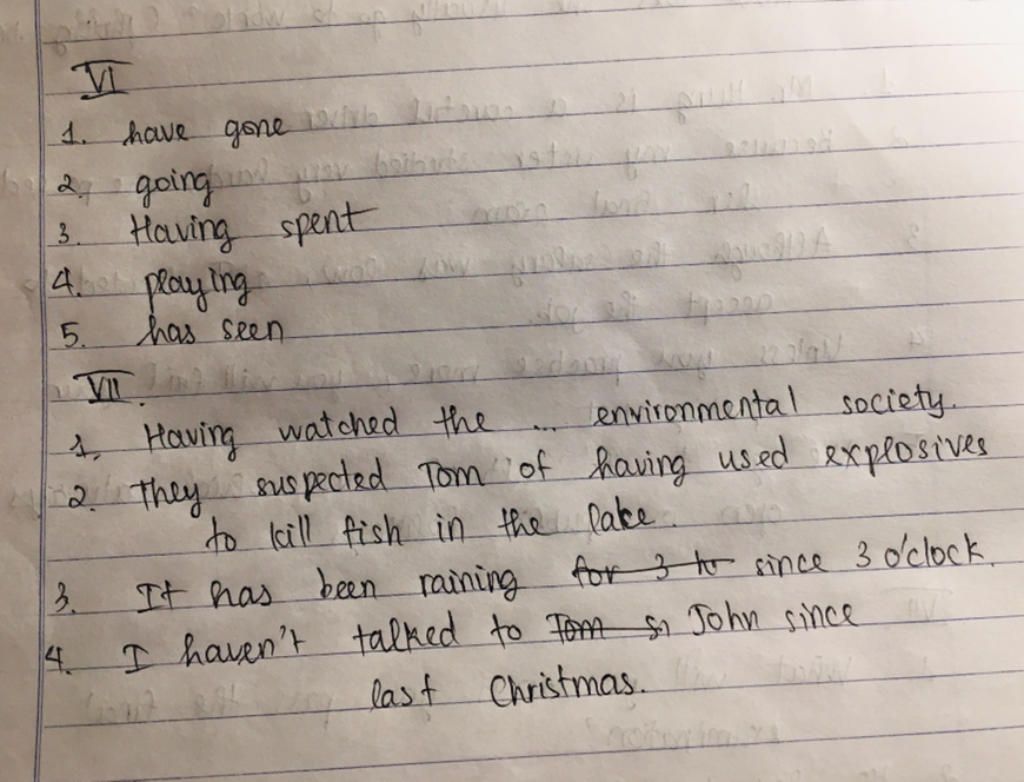 VI
1. have gone
2. going
3. Having spent
4. playing
5. has seen
VII.
1. Having watched the ... environmental society.
2. They suspected Tom of having used explosives
to kill fish in the lake.
3. It has been raining for 3 to since 3 o'clock.
4. I haven't talked to Tom si John since
last Christmas.